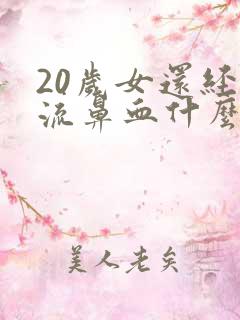 20歲女還经
流鼻血什麼
美人老矣